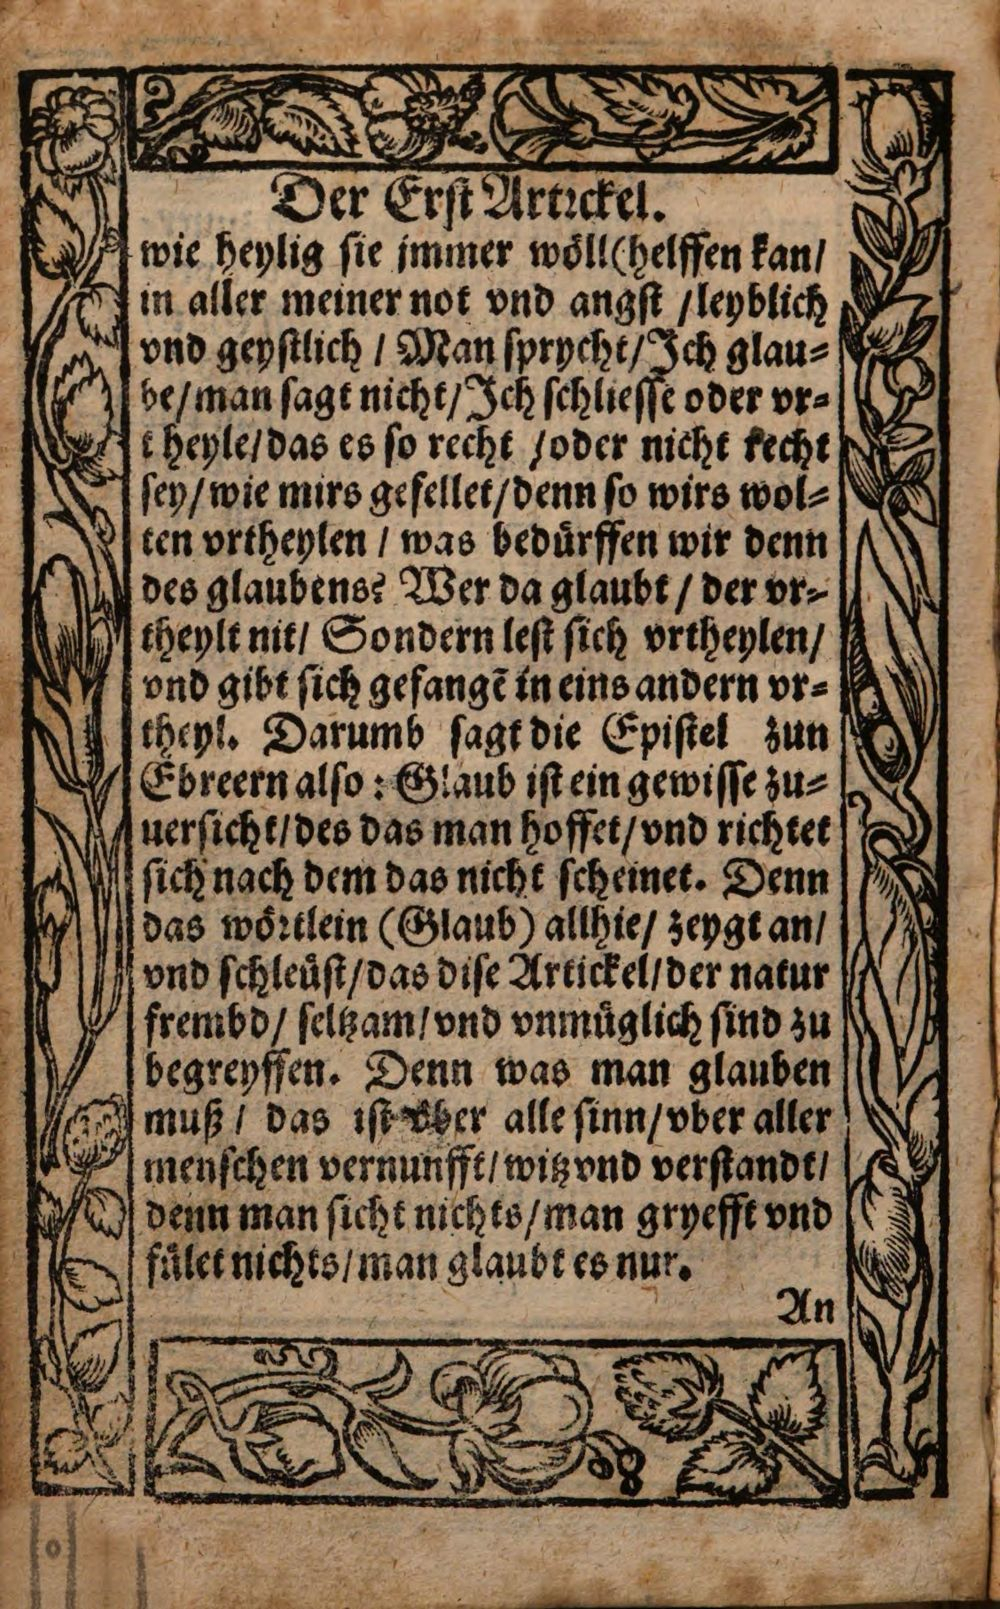 Der Erst Artickel.
wie heylig sie jmmer wöll(helffen kan/
in aller meiner not vnd angst /leyblich
vnd geystlich / Man sprycht/Ich glau⸗
be/man sagt nicht/Ich schliesse oder vr⸗
theyle/das es so recht /oder nicht recht
sey/wie mirs gefellet/denn so wirs wol⸗
ten vrtheylen / was bedürffen wir denn
des glaubens? Wer da glaubt / der vr⸗
theylt nit/ Sondern lest sich vrtheylen/
vnd gibt sich gefangẽ in eins andern vr⸗
theyl. Darumb sagt die Epistel zun
Ebreern also: Glaub ist ein gewisse zu⸗
uersicht/des das man hoffet/vnd richtet
sich nach dem das nicht scheinet. Denn
das wörtlein (Glaub) allhie/ zeygt an/
vnd schleüst/das dise Artickel/der natur
frembd/ seltzam/vnd vnmüglich sind zu
begreyffen. Denn was man glauben
muß/ das ist vber alle sinn/vber aller
menschen vernunfft/witz vnd verstandt/
denn man sicht nichts/man gryefft vnd
fület nichts/man glaubt es nur.
An